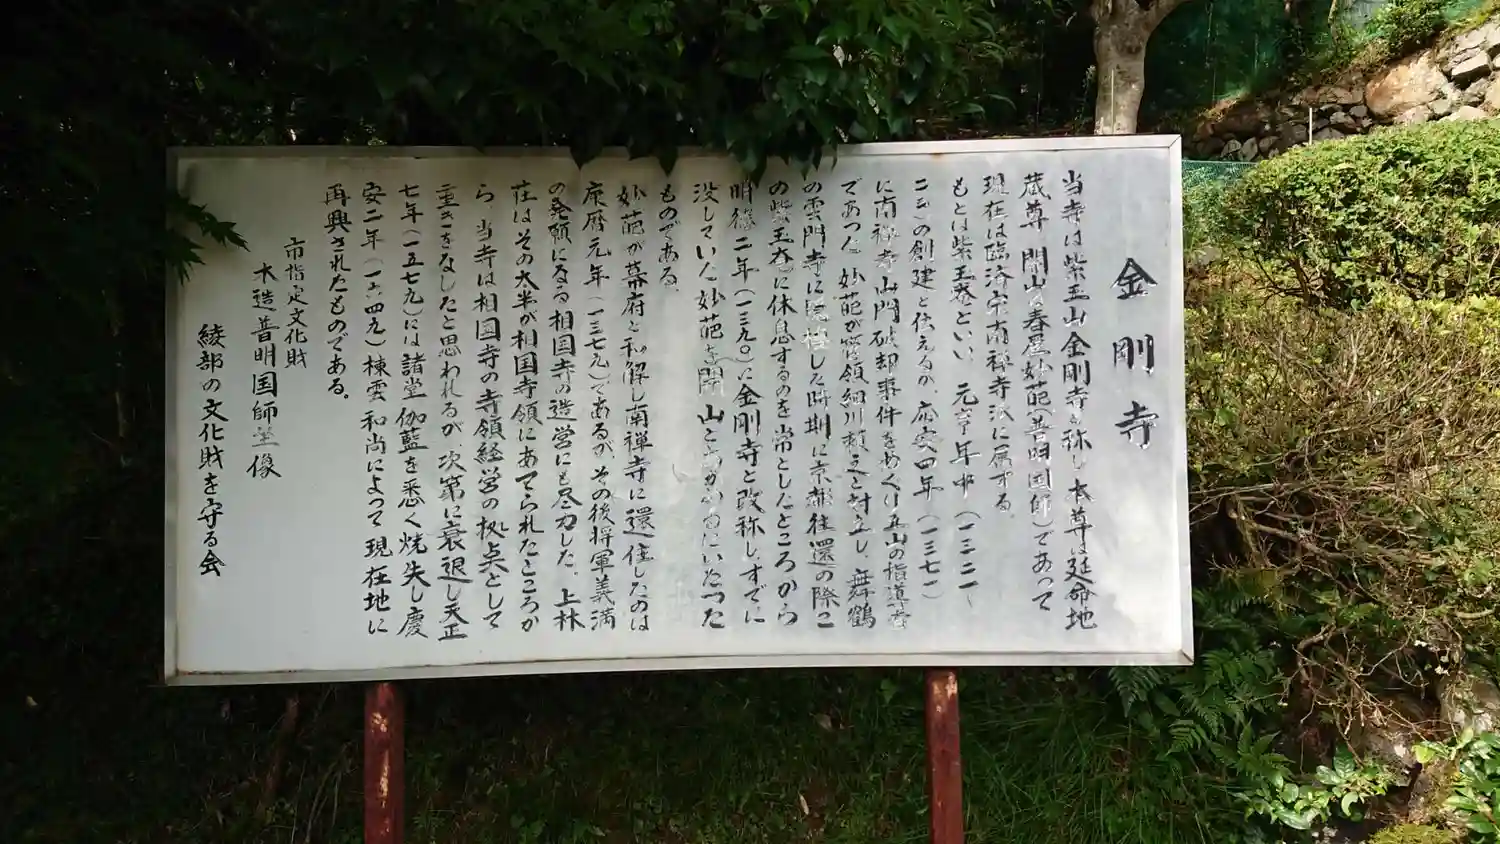 金剛寺
当寺は紫玉山金剛寺と称し本尊は延命地
蔵尊 開山は春屋妙葩(普明国師)であって
現在は臨済宗南禅寺派に属する
もとは紫玉庵といい 元亨年中(一三二一
二三)の創建と伝えるが 応安四年(一三七一)
に南禅寺山門破却事件をめぐり五山の指導者
であった 妙葩が管領細川頼之と対立し、舞鶴
の雲門寺に隠棲した時期に京都往還の際こ
の紫玉庵に休息するのを常としたところから
明徳二年(一三九〇)に金剛寺と改称し、すでに
没していた妙葩を開山とあおぐにいたった
ものである。
妙葩が幕府と和解し南禅寺に還住したのは
康暦元年(一三七九)であるが その後将軍義満
の発願になる相国寺の造営にも尽力した。上林
荘はその大半が相国寺領にあてられたところか
ら、当寺は相国寺の寺領経営の拠点として
重きをなしたと思われるが、次第に衰退し天正
七年(一五七九)には諸堂伽藍を悉く焼失し慶
安二年(一六四九)棟雲和尚によって現在地に
再興されたものである。
市指定文化財
木造普明国師坐像
綾部の文化財を守る会